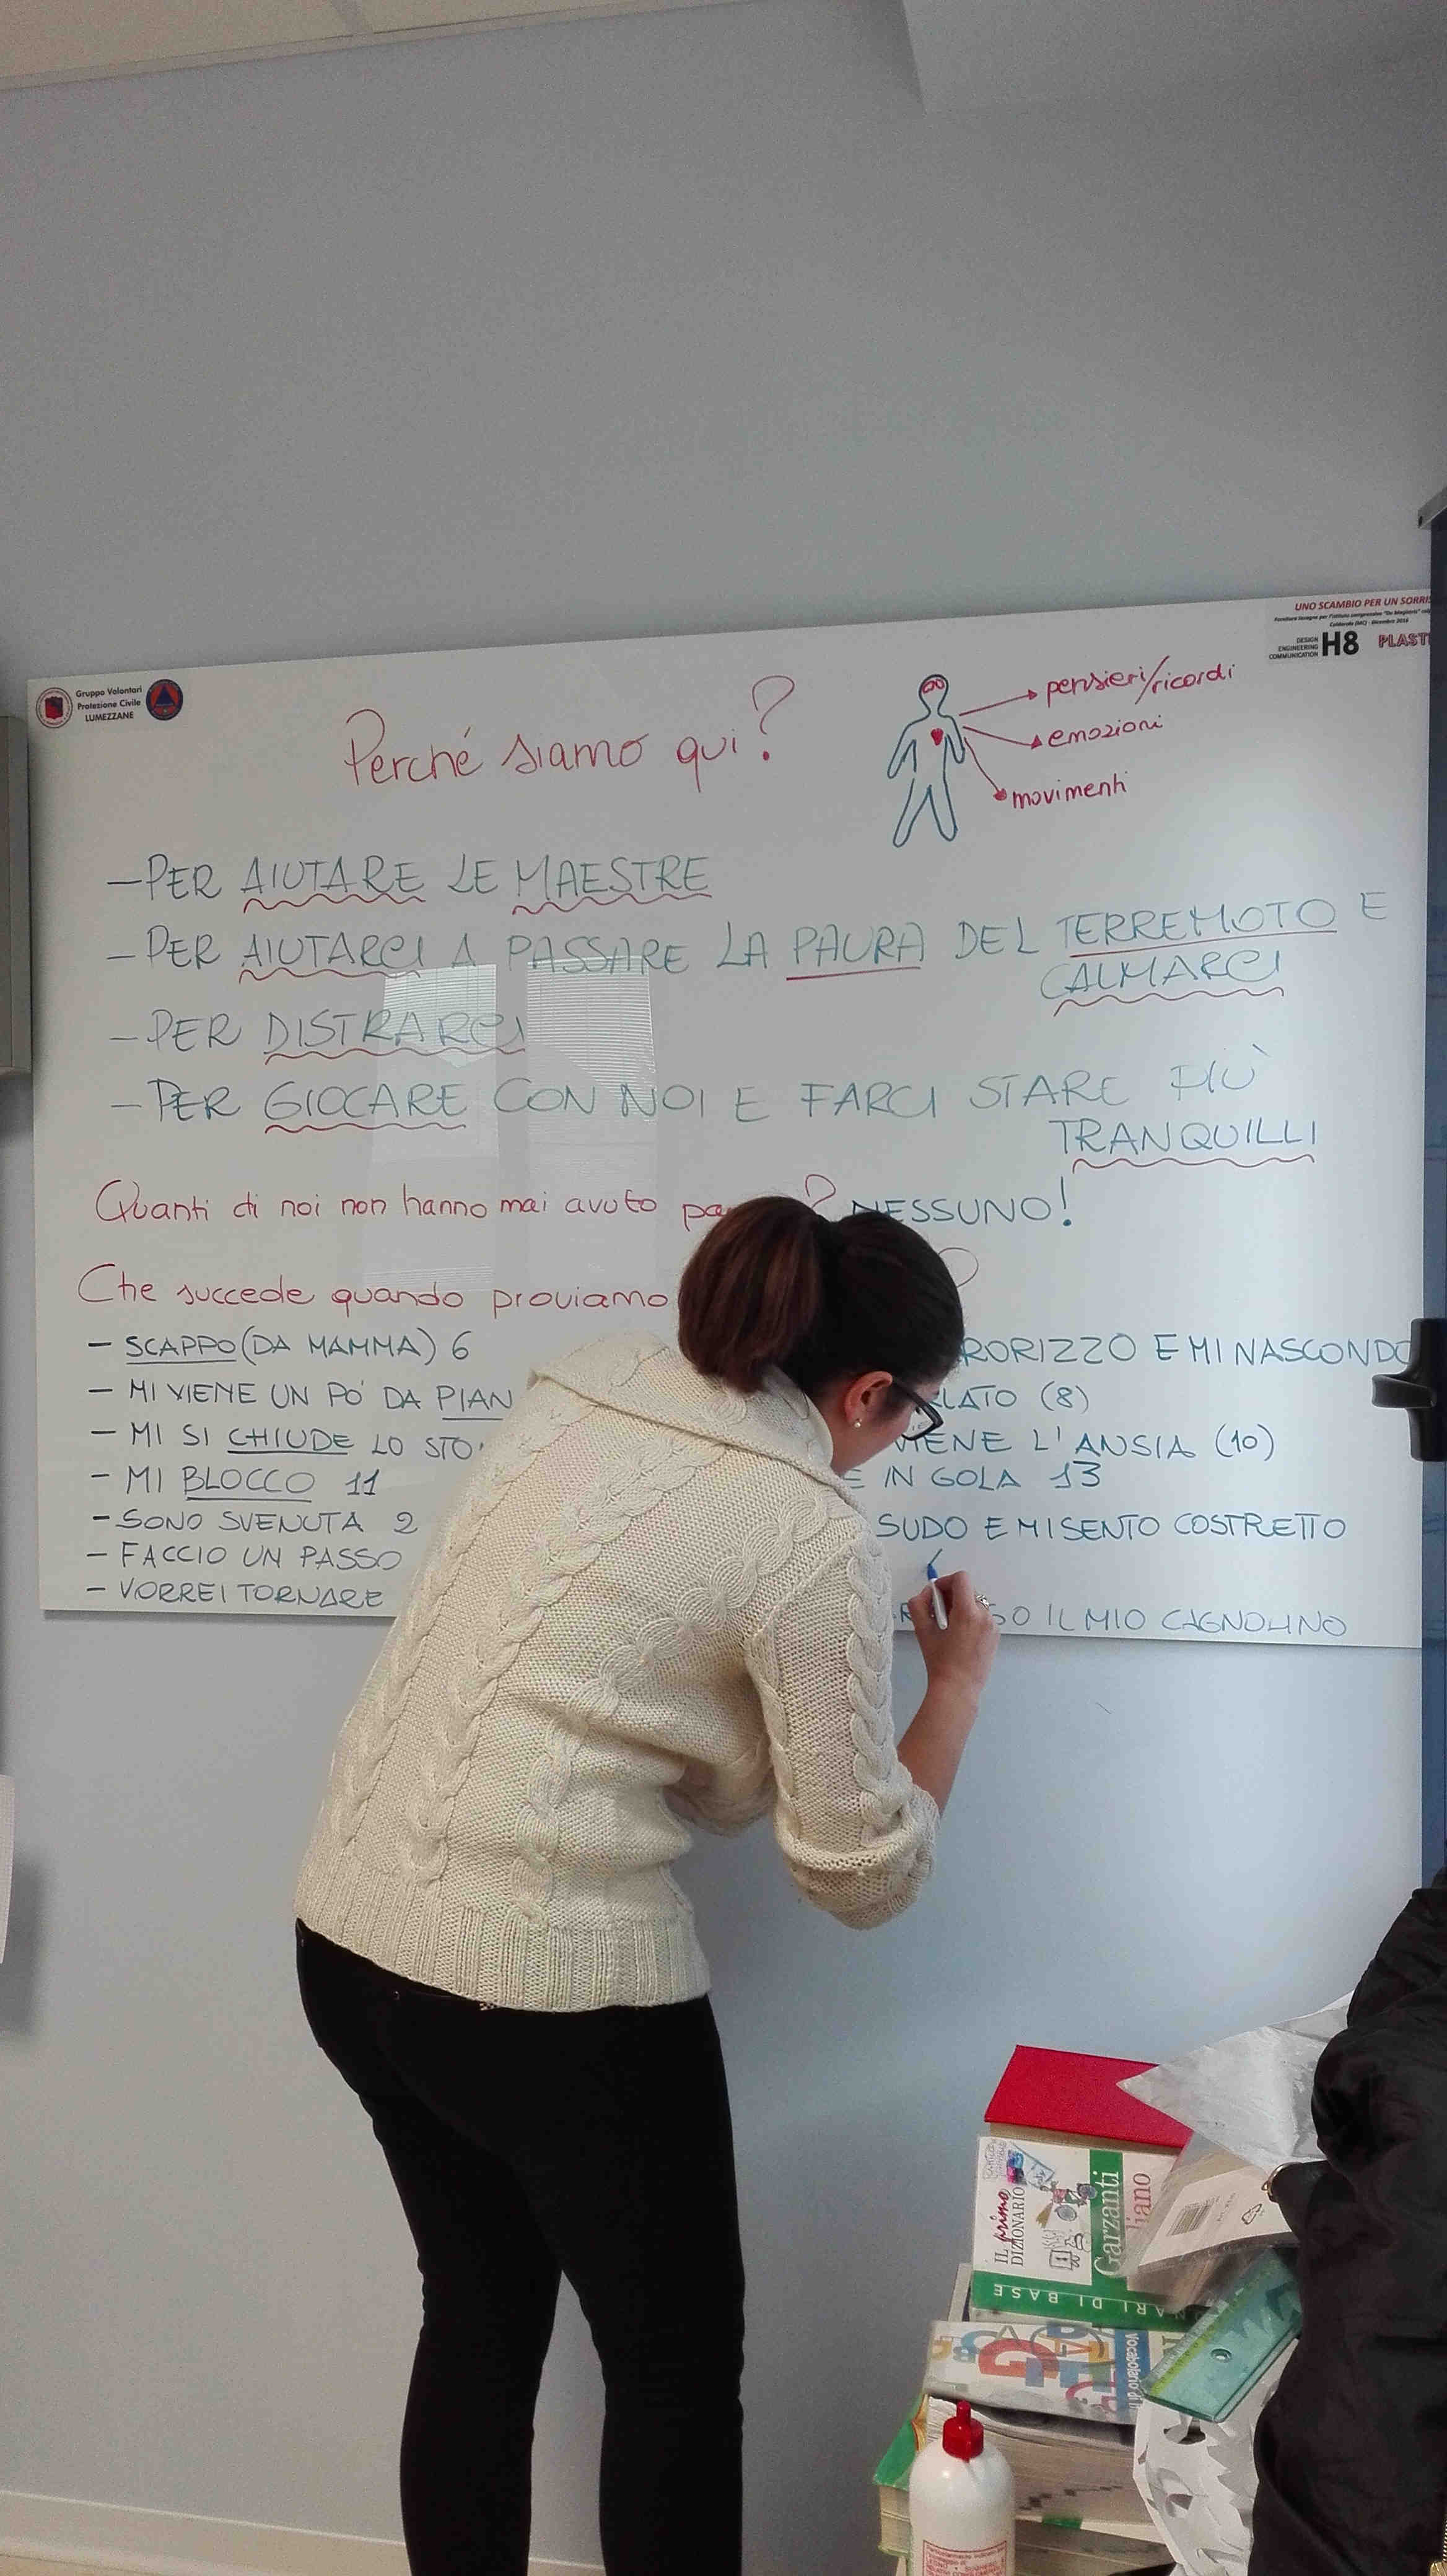 Gruppo Volontari
Protezione Civile
LUMEZZANE
UNO SCAMBIO PER UN SORRIS
DESIGN
ENGINEERING
COMMUNICATION
H8
PLAST
Perché siamo qui?
pensieri/ricordi
emozioni
movimenti
– PER AIUTARE LE MAESTRE
– PER AIUTARCI A PASSARE LA PAURA DEL TERREMOTO E
CALMARCI
– PER DISTRARCI
– PER GIOCARE CON NOI E FARCI STARE PIÙ
TRANQUILLI
Quanti di noi non hanno mai avuto pa ? NESSUNO!
Che succede quando proviamo
– SCAPPO (DA MAMMA) 6
– MI VIENE UN PO' DA PIAN
– MI SI CHIUDE LO STO
– MI BLOCCO 11
– SONO SVENUTA 2
– FACCIO UN PASSO
– VORREI TORNARE
RORIZZO E MI NASCONDO
LATO (8)
VIENE L'ANSIA (10)
E IN GOLA 13
SUDO E MI SENTO COSTRETTO
SO IL MIO CAGNOLINO
IL primo
DIZIONARIO
Garzanti
liano
NARI DI BASE
Vocabolario di